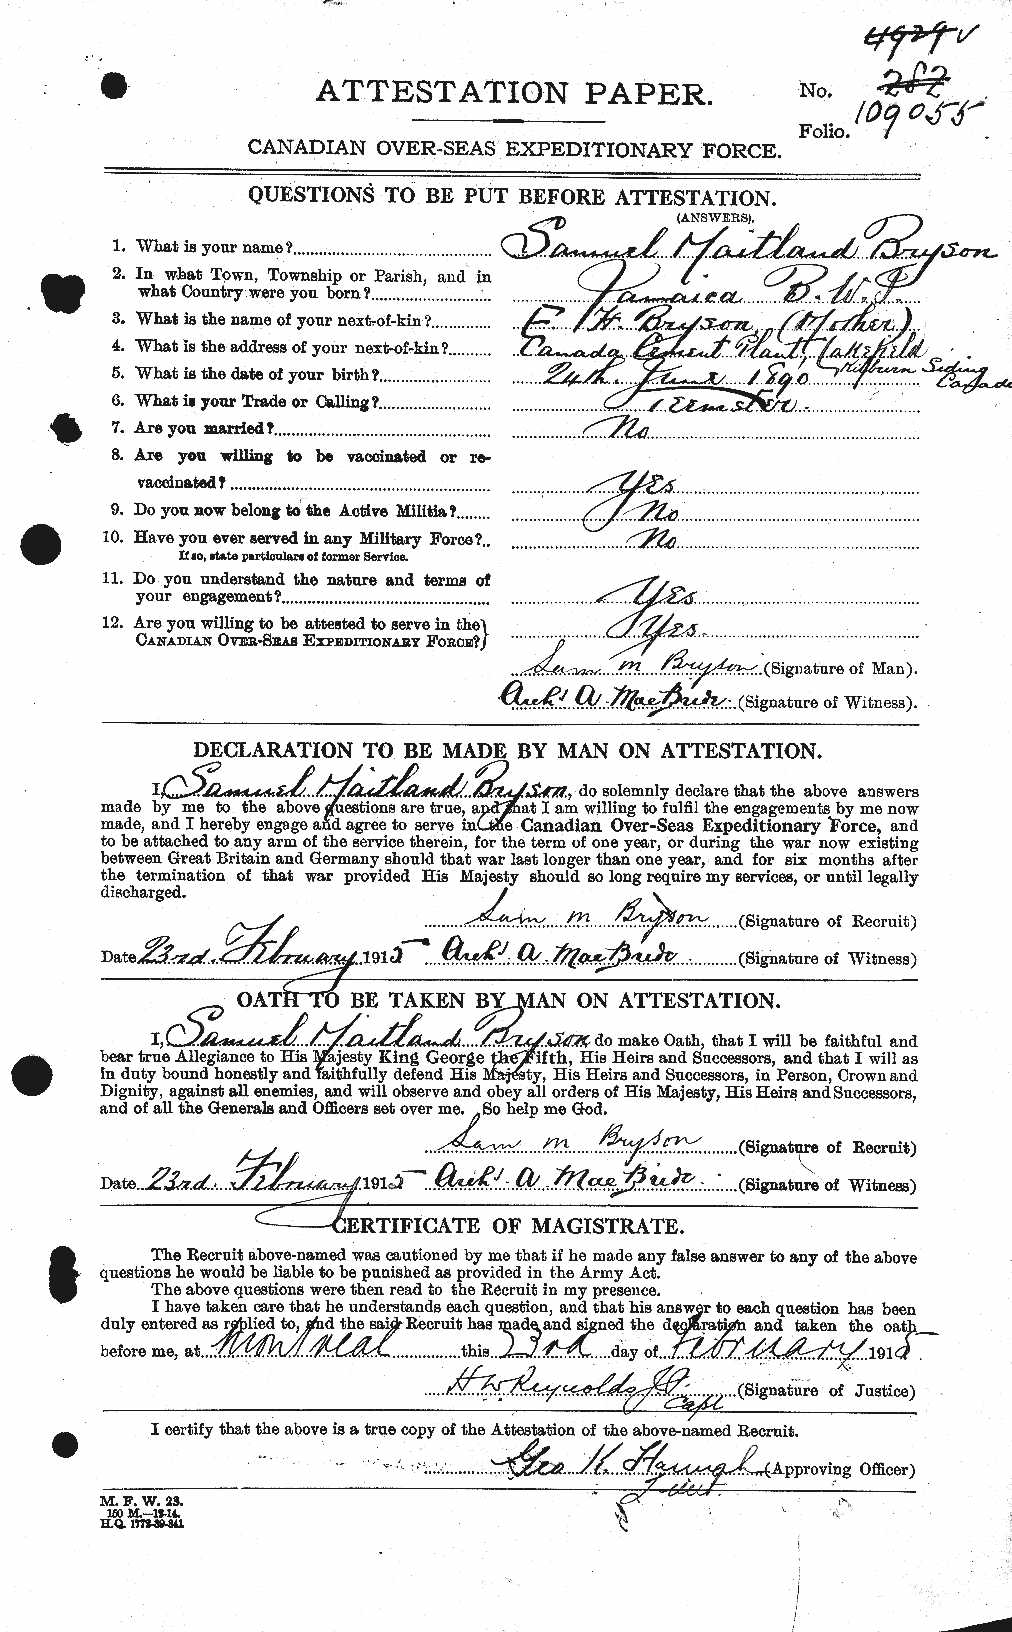 4929 ✓
ATTESTATION PAPER.
No. 282
109055
Folio.
CANADIAN OVER-SEAS EXPEDITIONARY FORCE.
QUESTIONS TO BE PUT BEFORE ATTESTATION.
(ANSWERS).
1. What is your name? Samuel Maitland Bryson
2. In what Town, Township or Parish, and in
what Country were you born? Jamaica B.W.I.
3. What is the name of your next-of-kin? E. H. Bryson (Mother)
4. What is the address of your next-of-kin? Canada Cement Plant, Lakefield
Siding
Canada
5. What is the date of your birth? 24th. June 1890
6. What is your Trade or Calling? Teamster.
7. Are you married? No
8. Are you willing to be vaccinated or re-
vaccinated? Yes
9. Do you now belong to the Active Militia? No
10. Have you ever served in any Military Force? No
If so, state particulars of former Service.
11. Do you understand the nature and terms of
your engagement? Yes
12. Are you willing to be attested to serve in the
CANADIAN OVER-SEAS EXPEDITIONARY FORCE? Yes.
Sam M Bryson (Signature of Man).
Archd A MacBride (Signature of Witness).
DECLARATION TO BE MADE BY MAN ON ATTESTATION.
I, Samuel Maitland Bryson, do solemnly declare that the above answers
made by me to the above questions are true, and that I am willing to fulfil the engagements by me now
made, and I hereby engage and agree to serve in the Canadian Over-Seas Expeditionary Force, and
to be attached to any arm of the service therein, for the term of one year, or during the war now existing
between Great Britain and Germany should that war last longer than one year, and for six months after
the termination of that war provided His Majesty should so long require my services, or until legally
discharged.
Sam M Bryson (Signature of Recruit)
Date 23rd. February 1915 Archd. A. MacBride (Signature of Witness)
OATH TO BE TAKEN BY MAN ON ATTESTATION.
I, Samuel Maitland Bryson do make Oath, that I will be faithful and
bear true Allegiance to His Majesty King George the Fifth, His Heirs and Successors, and that I will as
in duty bound honestly and faithfully defend His Majesty, His Heirs and Successors, in Person, Crown and
Dignity, against all enemies, and will observe and obey all orders of His Majesty, His Heirs and Successors,
and of all the Generals and Officers set over me. So help me God.
Sam M Bryson (Signature of Recruit)
Date 23rd. February 1915 Archd. A MacBride. (Signature of Witness)
CERTIFICATE OF MAGISTRATE.
The Recruit above-named was cautioned by me that if he made any false answer to any of the above
questions he would be liable to be punished as provided in the Army Act.
The above questions were then read to the Recruit in my presence.
I have taken care that he understands each question, and that his answer to each question has been
duly entered as replied to, and the said Recruit has made and signed the declaration and taken the oath
before me, at Montreal this 23rd day of February 1915.
H W Reynolds J.P. (Signature of Justice)
Capt
I certify that the above is a true copy of the Attestation of the above-named Recruit.
Geo K. Haugh (Approving Officer)
Lieut.
M. F. W. 23.
150 M.—12-14.
H.Q. 1772-39-841